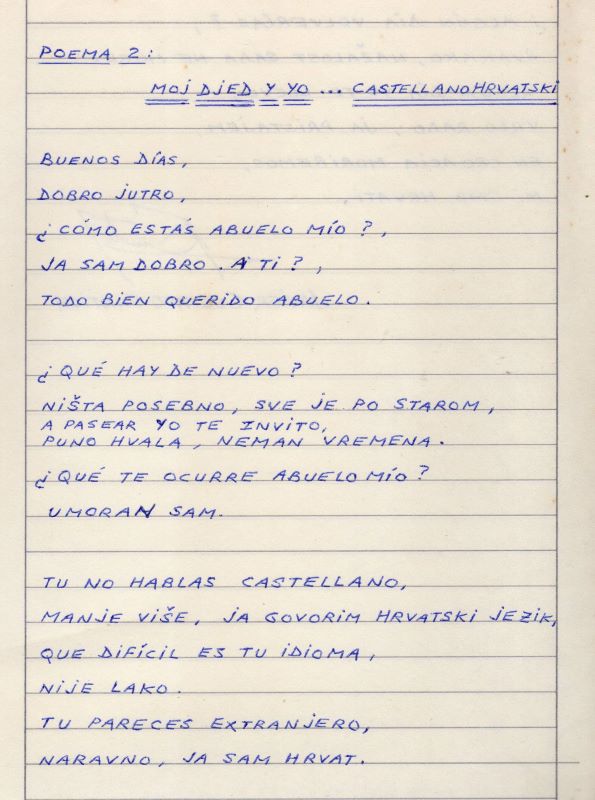 POEMA 2:
MOJ DJED Y YO ... CASTELLANOHRVATSKI
BUENOS DÍAS,
DOBRO JUTRO,
¿CÓMO ESTÁS ABUELO MÍO?,
JA SAM DOBRO. A TI?,
TODO BIEN QUERIDO ABUELO.
¿QUÉ HAY DE NUEVO?
NIŠTA POSEBNO, SVE JE PO STAROM,
A PASEAR YO TE INVITO,
PUNO HVALA, NEMAN VREMENA.
¿QUÉ TE OCURRE ABUELO MÍO?
UMORAN SAM.
TU NO HABLAS CASTELLANO,
MANJE VIŠE, JA GOVORIM HRVATSKI JEZIK,
QUE DIFÍCIL ES TU IDIOMA,
NIJE LAKO.
TU PARECES EXTRANJERO,
NARAVNO, JA SAM HRVAT.